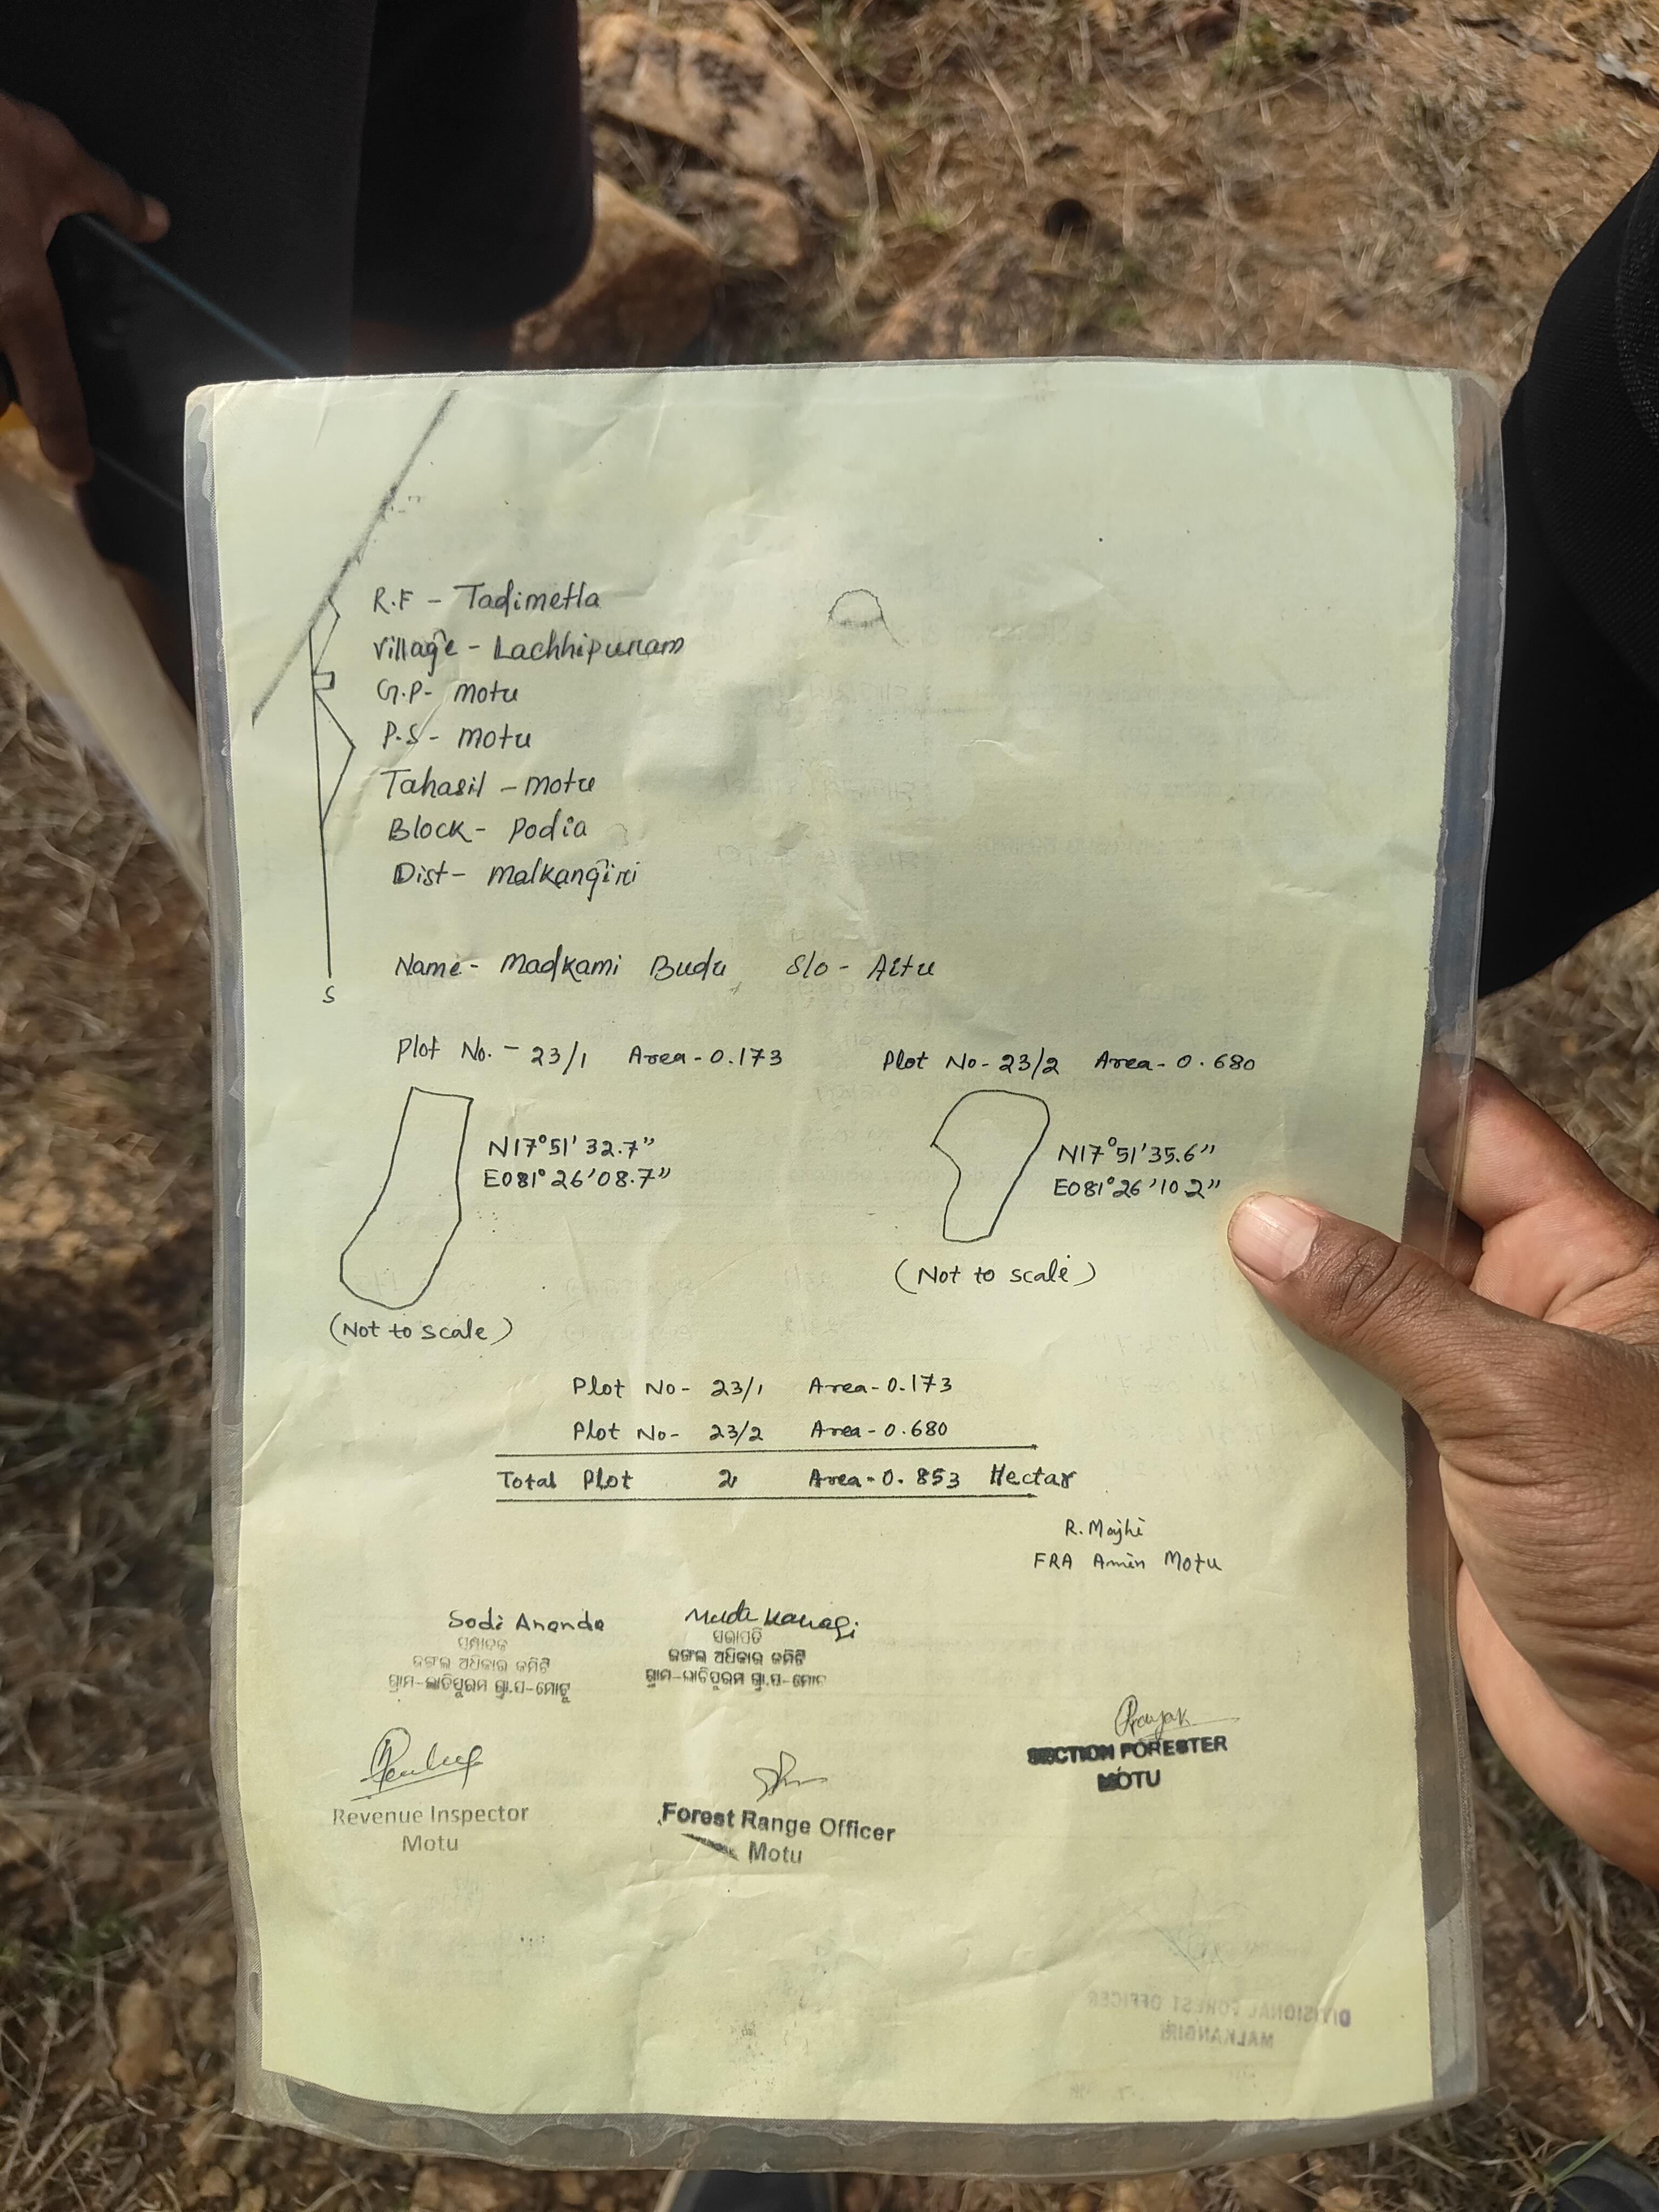 R.F - Tadimetla
Village - Lachhipuram
G.P- Motu
P.S - Motu
Tahasil - Motu
Block - Podia
Dist - Malkangiri
S
Name - Madkami Budu S/o - Aitu
Plot No. - 23/1 Area - 0.173
Plot No - 23/2 Area - 0.680
N17°51'32.7"
E081°26'08.7"
N17°51'35.6"
E081°26'10.2"
(Not to scale)
(Not to scale)
Plot No - 23/1 Area - 0.173
Plot No - 23/2 Area - 0.680
Total Plot 2 Area - 0.853 Hectar
R. Majhi
FRA Amin Motu
Sodi Ananda
ସମ୍ପାଦକ
ଜଙ୍ଗଲ ଅଧିକାର କମିଟି
ଗ୍ରାମ-ଲାଚିପୁରମ ଗ୍ରା.ପ-ମୋଟୁ
ସଭାପତି
ଜଙ୍ଗଲ ଅଧିକାର କମିଟି
ଗ୍ରାମ-ଲାଚିପୁରମ ଗ୍ରା.ପ-ମୋଟୁ
SECTION FORESTER
MOTU
Revenue Inspector
Motu
Forest Range Officer
Motu
DIVISIONAL FOREST OFFICER
MALKANGIRI